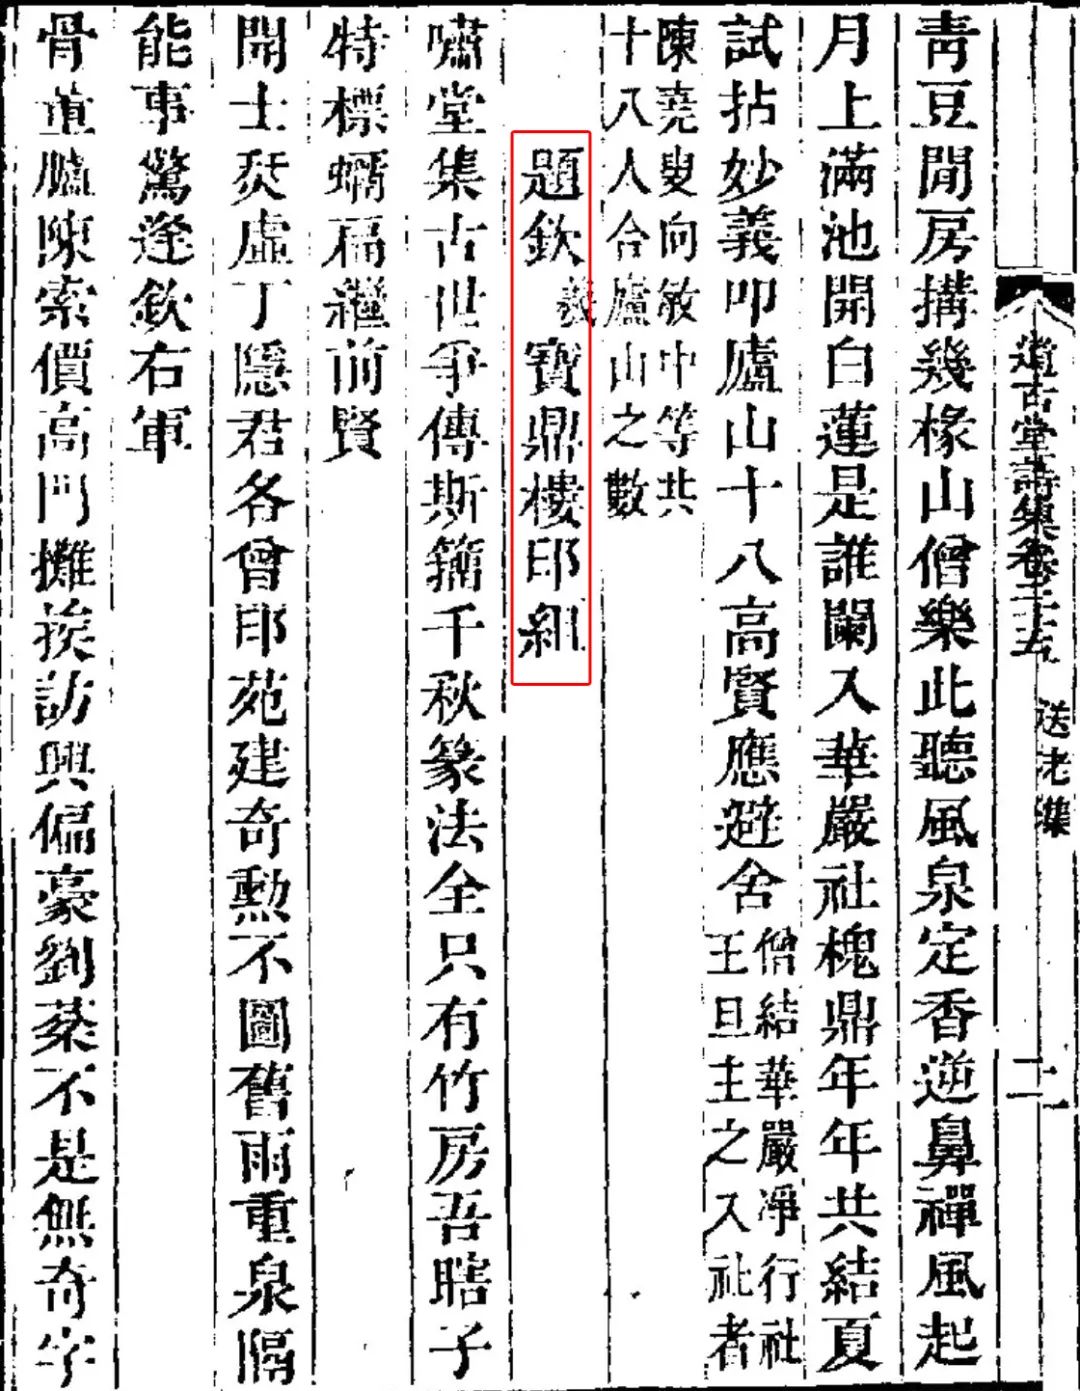 道古堂詩集卷二十五
送老集
二
青豆閒房搆幾椽山僧樂此聽風泉定香逆鼻禪風起
月上滿池開白蓮是誰闌入華嚴社槐鼎年年共結夏
試拈妙義叩廬山十八高賢應避舍僧結華嚴凈行社
王旦主之入社者
陳堯叟向敏中等共
十八人合廬山之數
題欽義寶鼎樓印組
嘯堂集古世爭傳斯籀千秋篆法全只有竹房吾瞎子
特標蠕扁繼前賢
開士焚虛丁隱君各曾印苑建奇勲不圖舊雨重泉隔
能事驚逢欽右軍
骨董臚陳索價高門攤挨訪興偏豪劉棻不是無奇字